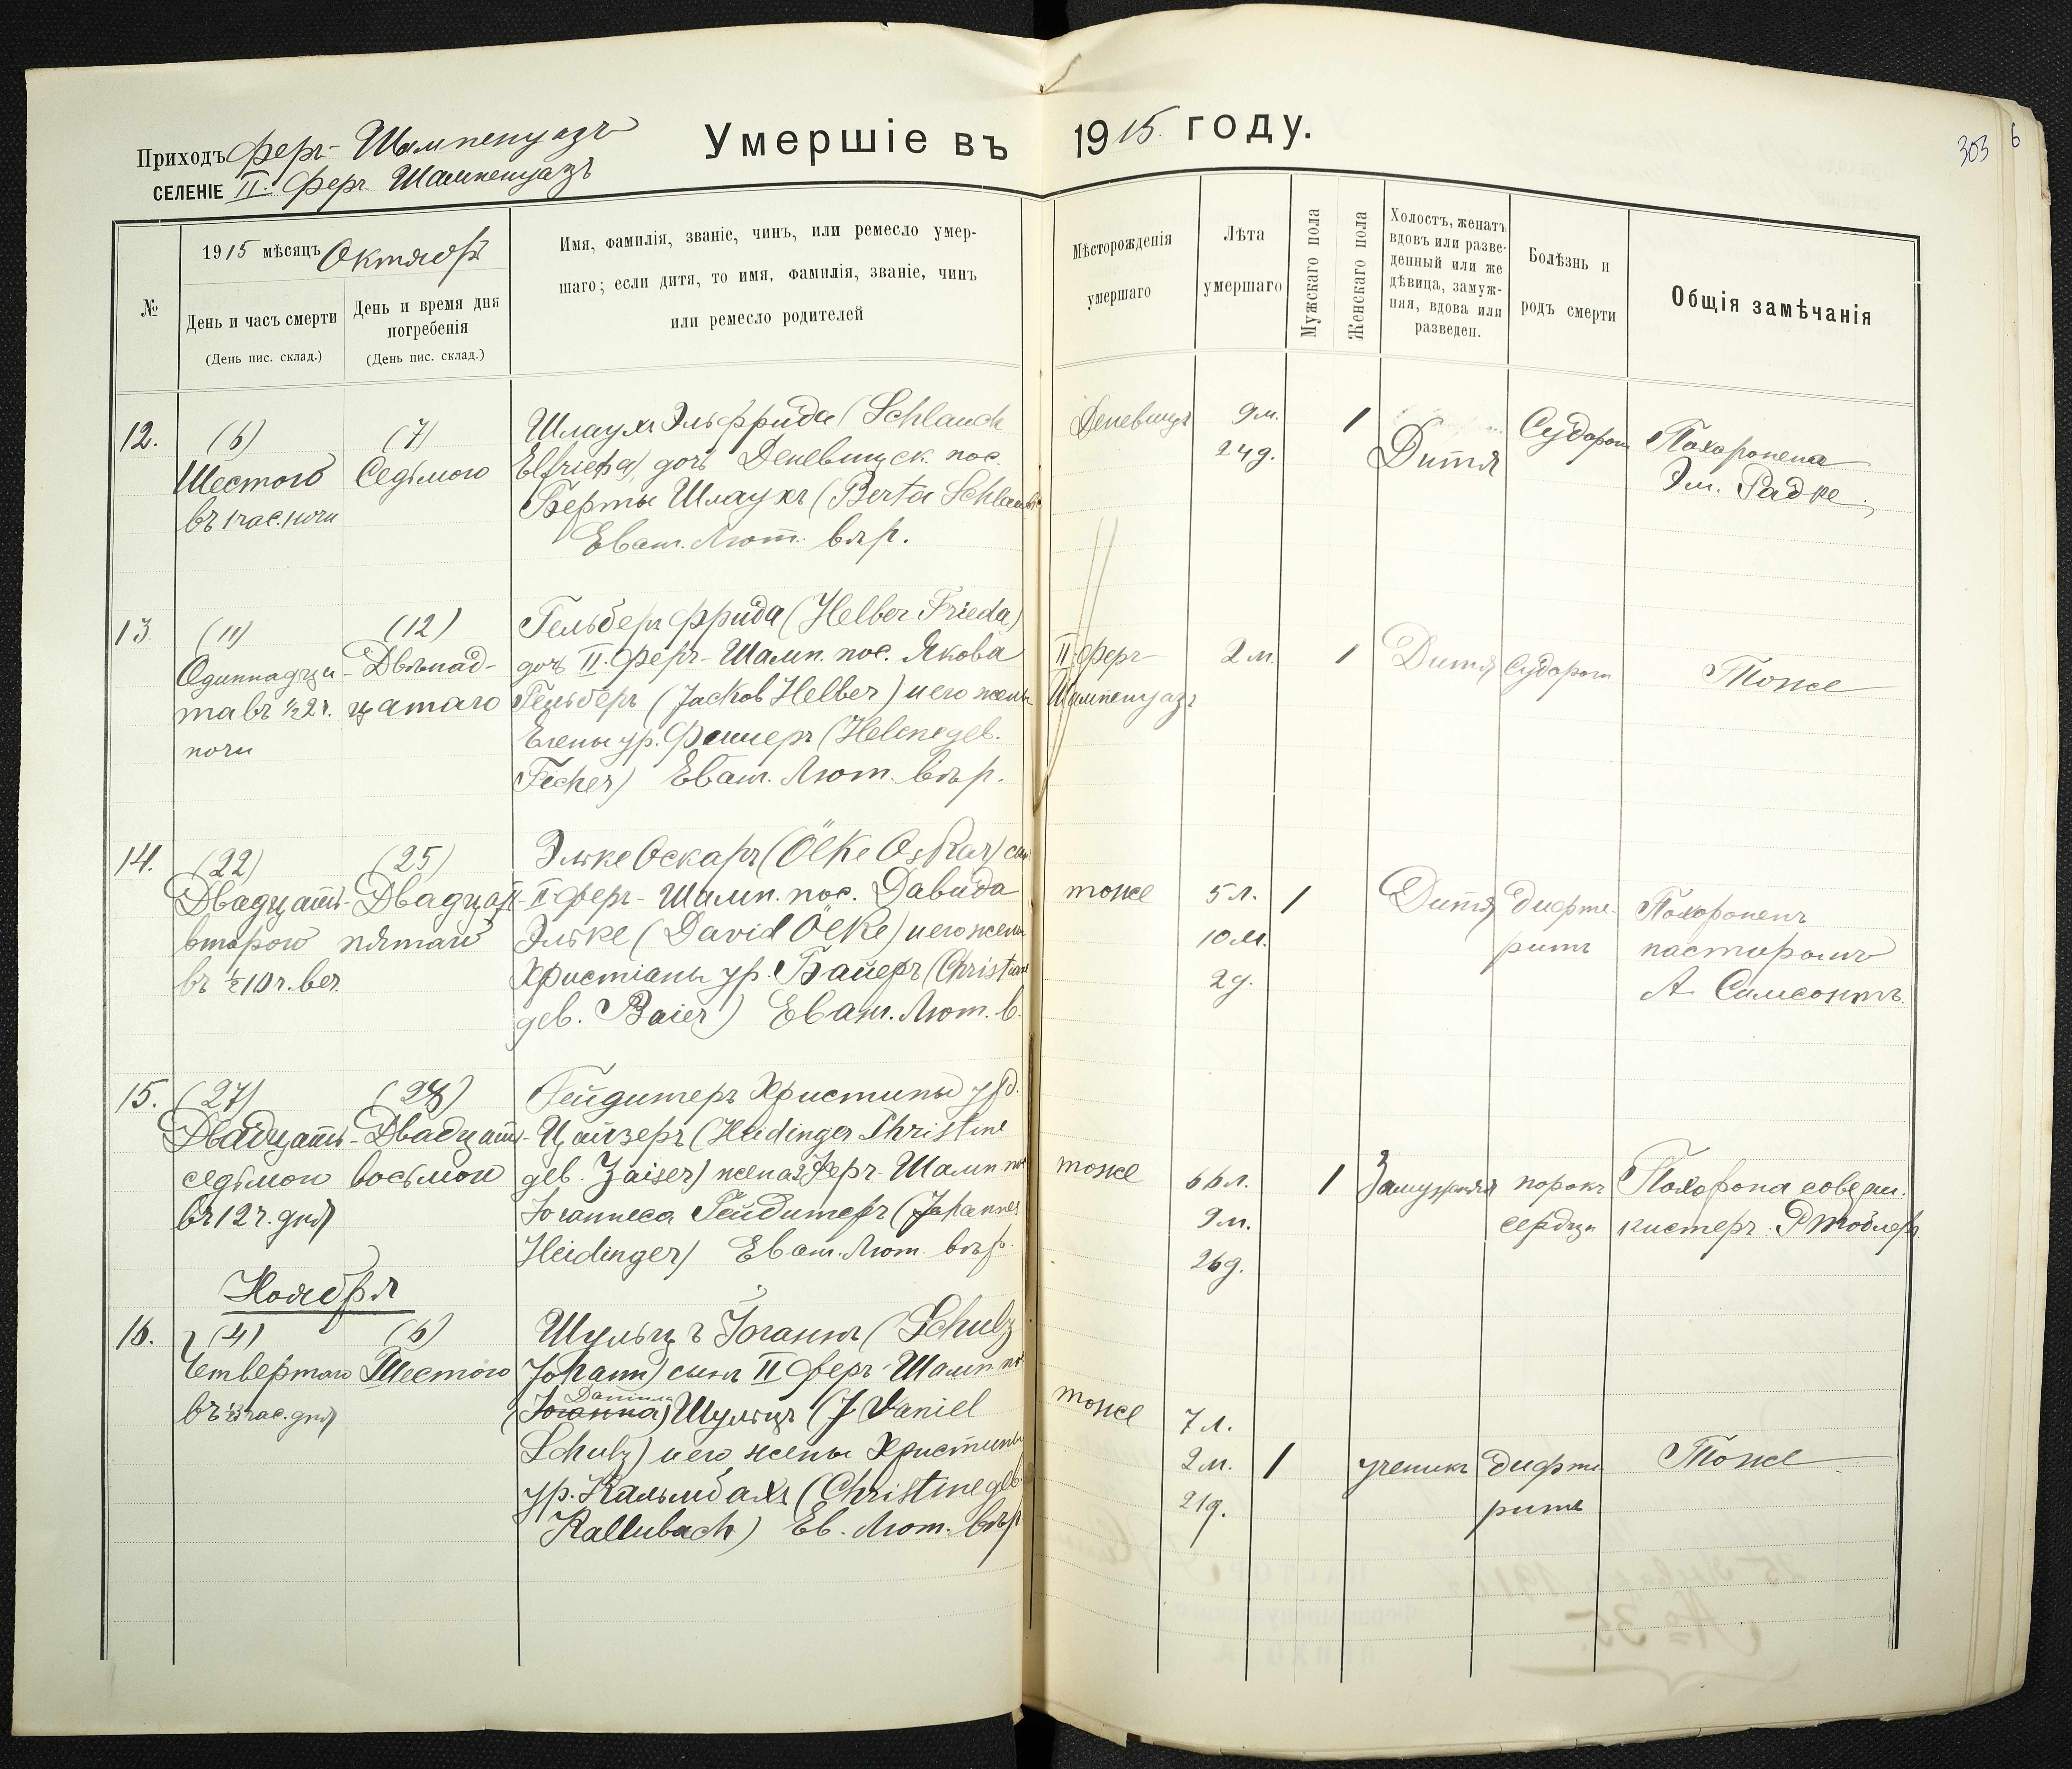 Приходъ Феръ-Шампенуазъ
СЕЛЕНІЕ II. Феръ Шампенуазъ
Умершіе въ 1915 году.
303
6
№
1915 мѣсяцъ Октябрь
День и часъ смерти
(День пис. склад.)
День и время дня
погребенія
(День пис. склад.)
Имя, фамилія, званіе, чинъ, или ремесло умер-
шаго; если дитя, то имя, фамилія, званіе, чинъ
или ремесло родителей
Мѣсторожденія
умершаго
Лѣта
умершаго
Мужскаго пола
Женскаго пола
Холостъ, женатъ
вдовъ или разве-
денный или же
дѣвица, замуж-
няя, вдова или
разведен.
Болѣзнь и
родъ смерти
Общія замѣчанія
12.
(6)
Шестого
въ 1 час. ночи
(7)
Седьмого
Шлаухъ Эльфрида (Schlauch
Elfrieda) дочь Деневицск. пос.
Берты Шлаухъ (Berta Schlauch
Еванг. Лют. вѣр.
Деневицъ
9 м.
24 д.
1
Дитя
Судороги
Похоронена
Эм. Радке
13.
(11)
Одиннадца-
та въ ½2 ч.
ночи
(12)
Двѣнад-
цатаго
Гельберъ Фрида (Helber Frieda)
дочь II. Феръ-Шамп. пос. Якова
Гельберъ (Jackob Helber) и его жены
Елены ур. Фишеръ (Helene geb.
Ficher) Еванг. Лют. вѣр.
II Феръ-
Шампенуазъ
2 м.
1
Дитя
Судороги
Тоже
14.
(22)
Двадцать-
второго
въ ½10 ч. веч.
(25)
Двадцать-
пятаго
Эльке Оскаръ (Ölke Oskar) сынъ
II Феръ-Шамп. пос. Давида
Эльке (David Ölke) и его жены
Христіаны ур. Байеръ (Christiane
geb. Baier) Еванг. Лют. в.
тоже
5 л.
10 м.
2 д.
1
Дитя
дифте-
ритъ
Похороненъ
пасторомъ
А. Самсонъ
15.
(27)
Двадцать-
седьмой
въ 12 ч. дня
(28)
Двадцать
восьмой
Гейдингеръ Христины урд.
Цайзеръ (Heidinger Christine
geb. Zaiser) жена 2 Феръ-Шамп. пос
Іоганнеса Гейдингеръ (Johannes
Heidinger) Еванг. Лют. вѣр.
тоже
66 л.
9 м.
26 д.
1
Замужняя
порокъ
сердца
Похорона соверш.
кистеръ
Ноября
16.
(4)
Четвертаго
въ ½3 час. дня
(6)
Шестого
Шульцъ Іоганнъ (Schulz
Johann) сынъ II Феръ-Шамп. пос
Даніила
(Іоганна) Шульцъ (J Daniel
Schulz) и его жены Христины
ур. Кальмбахъ (Christine geb.
Kallmbach) Ев. Лют. вѣр
тоже
7 л.
2 м.
21 д.
1
ученикъ
дифте
рите
Тоже